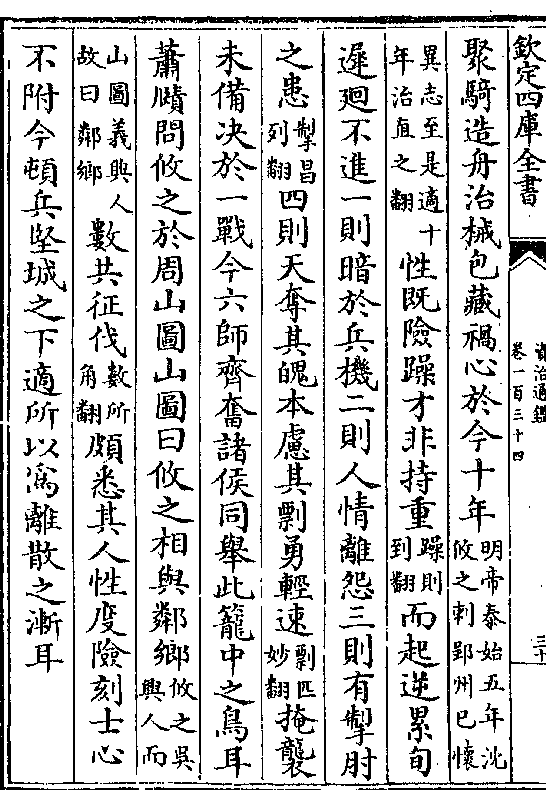 欽定四庫全書
資治通鑑
卷一百三十四
聚騎造舟治械包藏禍心於今十年明帝泰始五年沈攸之刺郢州已懷
異志至是適十年治直之翻性既險躁才非持重躁則到翻而起逆累旬
遲迴不進一則暗於兵機二則人情離怨三則有掣肘
之患掣昌列翻四則天奪其魄本慮其剽勇輕速剽匹妙翻掩襲
未備决於一戰今六師齊奮諸侯同舉此籠中之鳥耳
蕭賾問攸之於周山圖山圖曰攸之相與鄰鄉攸之吳興人而
山圖義興人故曰鄰鄉數共征伐數所角翻頗悉其人性度險刻士心
不附今頓兵堅城之下適所以為離散之漸耳